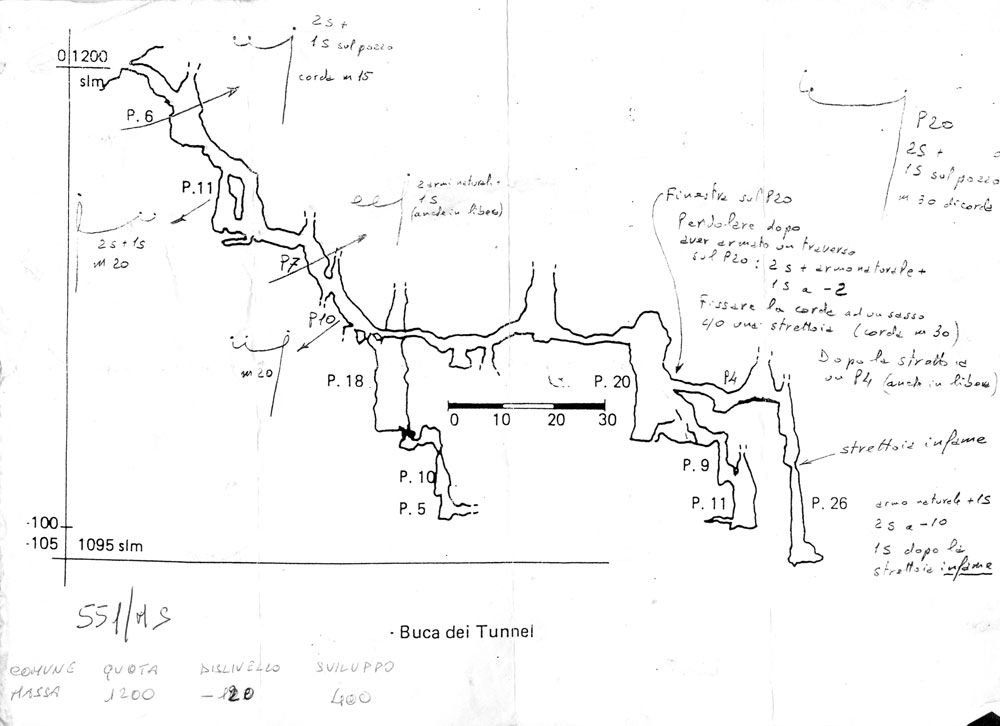 0 1200
slm
P. 6
2S +
1S sul pozzo
corda m 15
P. 11
2S + 1S
m 20
2 armi naturali +
1S
(anche in libera)
P7
P10
m 20
P20
2S +
1S sul pozzo
m 30 di corda
Finestra sul P20
Pendolare dopo
aver armato un traverso
sul P20: 2 S + armo naturale +
1S a -2
Fissare la corda ad un sasso
c/o una strettoia (corda m 30)
Dopo la strettoia
un P4 (anche in libera)
P4
P. 18
P. 20
0 10 20 30
P. 10
P. 5
P. 9
P. 11
strettoia infame
P. 26
armo naturale + 1S
2S a -10
1S dopo la
strettoia infame
-100
-105
1095 slm
551/MS
Buca dei Tunnel
COMUNE QUOTA DISLIVELLO SVILUPPO
MASSA 1200 -120 400